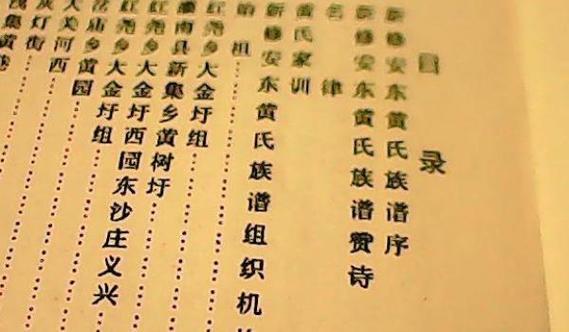 目录
新修安东黄氏族谱序
新修安东黄氏族谱赞诗
名律
黄氏家训
新修安东黄氏族谱组织机
始祖……
红尧乡大金圩组……
灌南县新集乡黄树圩……
红尧乡大金圩西园东沙庄义兴
红尧乡大金圩组……
岔庙乡黄园……
大关河西……
灯街……
集黄